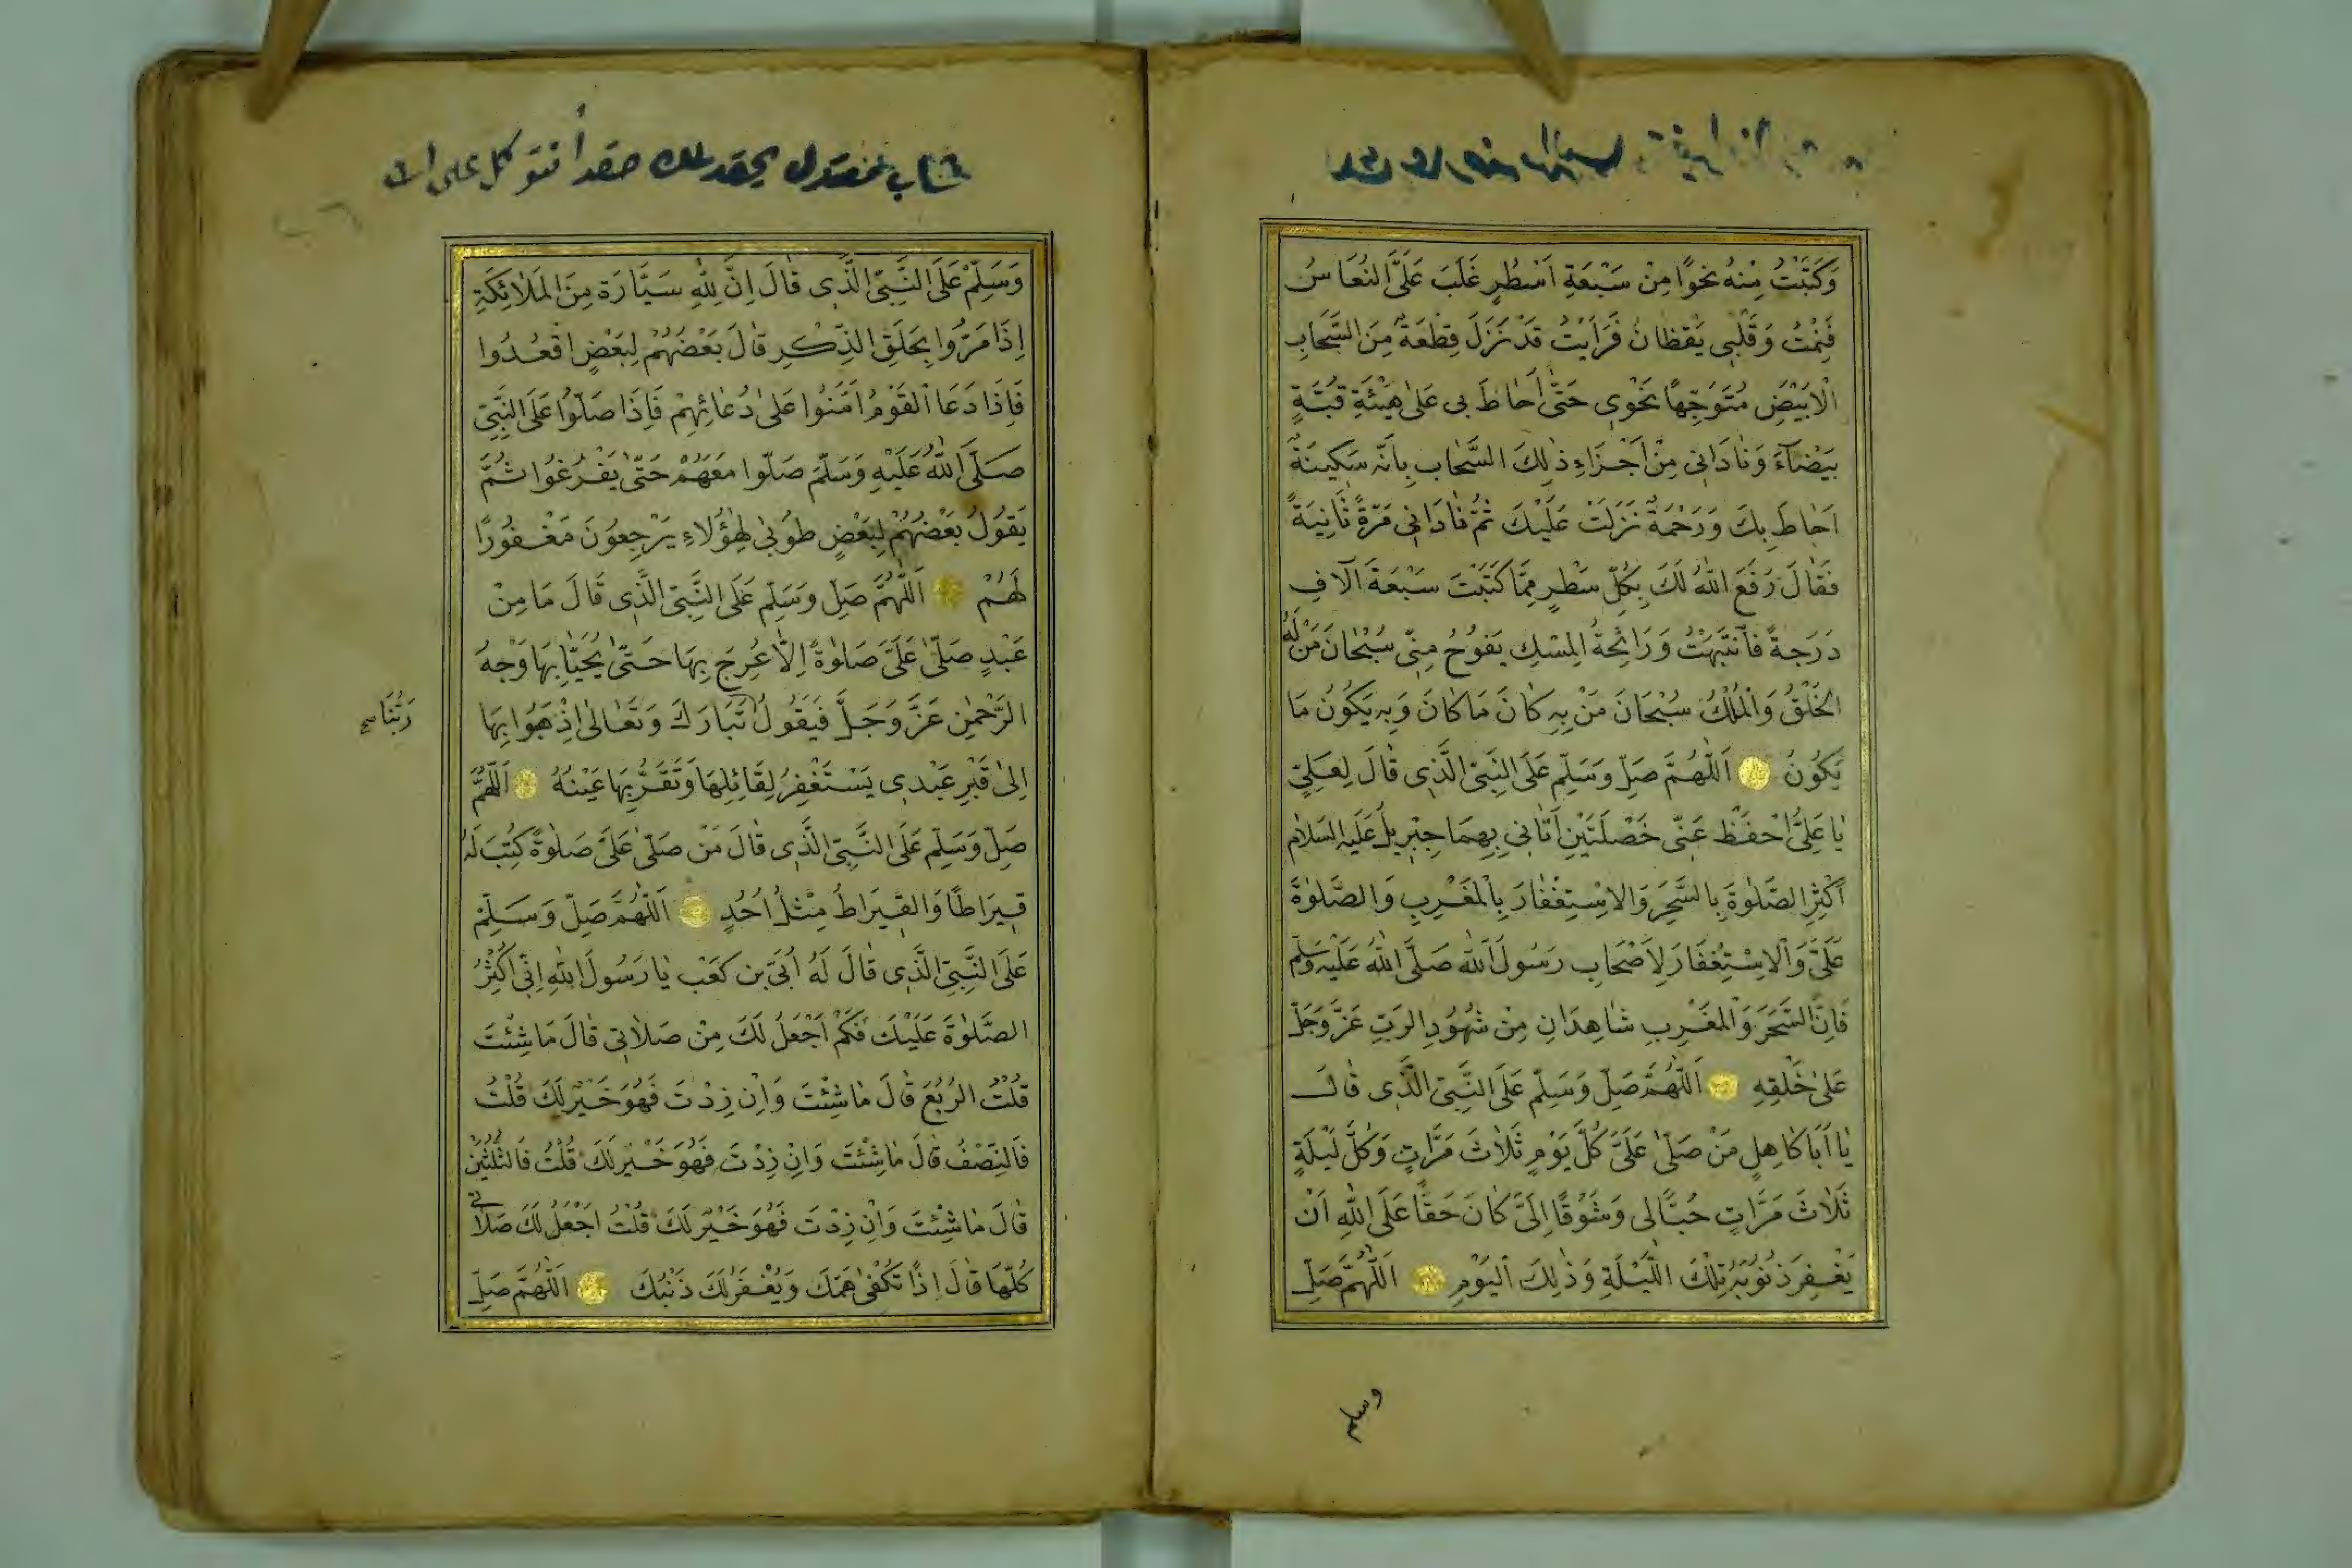 وَكَتَبْتُ مِنْهُ نَحْوًا مِنْ سَبْعَةِ اَسْطُرٍ غَلَبَ عَلَيَّ النُّعَاسُ
فَنِمْتُ وَقَلْبِى يَقْظَانُ فَرَاَيْتُ قَدْ نَزَلَ قِطْعَةٌ مِنَ السَّحَابِ
الْاَبْيَضِ مُتَوَجِّهًا نَحْوِى حَتّٰى اَحَاطَ بِى عَلٰى هَيْئَةِ قُبَّةٍ
بَيْضَآءَ وَنَادَانِى مِنْ اَجْزَاءِ ذٰلِكَ السَّحَابِ بِاَنَّهُ سَكِينَةٌ
اَحَاطَ بِكَ وَرَحْمَةٌ نَزَلَتْ عَلَيْكَ ثُمَّ نَادَانِى مَرَّةً ثَانِيَةً
فَقَالَ رَفَعَ اللّٰهُ لَكَ بِكُلِّ سَطْرٍ مِمَّا كَتَبْتَ سَبْعَةَ آلَافِ
دَرَجَةً فَانْتَبَهْتُ وَرَائِحَةُ الْمِسْكِ يَفُوحُ مِنِّى سُبْحَانَ مَنْ لَهُ
الْخَلْقُ وَالْمُلْكُ سُبْحَانَ مَنْ بِهِ كَانَ مَا كَانَ وَبِهِ يَكُونُ مَا
يَكُونُ اَللّٰهُمَّ صَلِّ وَسَلِّمْ عَلَى النَّبِىِّ الَّذِى قَالَ لِعَلِيٍّ
يَا عَلِيُّ احْفَظْ عَنِّى خَصْلَتَيْنِ اَتَانِى بِهِمَا جِبْرِيلُ عَلَيْهِ السَّلَامُ
اَكْثِرِ الصَّلٰوةَ بِالسَّحَرِ وَالْاِسْتِغْفَارَ بِالْمَغْرِبِ وَالصَّلٰوةَ
عَلَىَّ وَالْاِسْتِغْفَارَ لِاَصْحَابِ رَسُولِ اللّٰهِ صَلَّى اللّٰهُ عَلَيْهِ وَسَلَّمَ
فَاِنَّ السَّحَرَ وَالْمَغْرِبِ شَاهِدَانِ مِنْ شُهُودِ الرَّبِّ عَزَّ وَجَلَّ
عَلٰى خَلْقِهِ اَللّٰهُمَّ صَلِّ وَسَلِّمْ عَلَى النَّبِىِّ الَّذِى قَالَ
يَا اَبَا كَاهِلٍ مَنْ صَلّٰى عَلَىَّ كُلَّ يَوْمٍ ثَلَاثَ مَرَّاتٍ وَكُلَّ لَيْلَةٍ
ثَلَاثَ مَرَّاتٍ حُبًّا لِى وَشَوْقًا اِلَىَّ كَانَ حَقًّا عَلَى اللّٰهِ اَنْ
يَغْفِرَ ذُنُوبَهُ تِلْكَ اللَّيْلَةِ وَذٰلِكَ الْيَوْمِ اَللّٰهُمَّ صَلِّ
وسلم
وَسَلِّمْ عَلَى النَّبِىِّ الَّذِى قَالَ اِنَّ لِلّٰهِ سَيَّارَةً مِنَ الْمَلَائِكَةِ
اِذَا مَرُّوا بِحَلَقِ الذِّكْرِ قَالَ بَعْضُهُمْ لِبَعْضٍ اقْعُدُوا
فَاِذَا دَعَا الْقَوْمُ اَمَّنُوا عَلٰى دُعَائِهِمْ فَاِذَا صَلَّوْا عَلَى النَّبِىِّ
صَلَّى اللّٰهُ عَلَيْهِ وَسَلَّمَ صَلَّوْا مَعَهُمْ حَتّٰى يَفْرُغُوا ثُمَّ
يَقُولُ بَعْضُهُمْ لِبَعْضٍ طُوبٰى لِهٰؤُلَاءِ يَرْجِعُونَ مَغْفُورًا
لَهُمْ اَللّٰهُمَّ صَلِّ وَسَلِّمْ عَلَى النَّبِىِّ الَّذِى قَالَ مَا مِنْ
عَبْدٍ صَلّٰى عَلَىَّ صَلٰوةً اِلَّا عُرِجَ بِهَا حَتّٰى يُحَيَّا بِهَا وَجْهُ
الرَّحْمٰنِ عَزَّ وَجَلَّ فَيَقُولُ تَبَارَكَ وَتَعَالٰى اِذْهَبُوا بِهَا
رَبُّنَا صح
اِلٰى قَبْرِ عَبْدِى يَسْتَغْفِرُ لِقَائِلِهَا وَتَقَرُّ بِهَا عَيْنُهُ اَللّٰهُمَّ
صَلِّ وَسَلِّمْ عَلَى النَّبِىِّ الَّذِى قَالَ مَنْ صَلّٰى عَلَىَّ صَلٰوةً كُتِبَ لَهُ
قِيرَاطًا وَالْقِيرَاطُ مِثْلُ اُحُدٍ اَللّٰهُمَّ صَلِّ وَسَلِّمْ
عَلَى النَّبِىِّ الَّذِى قَالَ لَهُ اُبَىُّ بْنُ كَعْبٍ يَا رَسُولَ اللّٰهِ اِنِّى اُكْثِرُ
الصَّلٰوةَ عَلَيْكَ فَكَمْ اَجْعَلُ لَكَ مِنْ صَلَاتِى قَالَ مَا شِئْتَ
قُلْتُ الرُّبُعَ قَالَ مَا شِئْتَ وَاِنْ زِدْتَ فَهُوَ خَيْرٌ لَكَ قُلْتُ
فَالنِّصْفُ قَالَ مَا شِئْتَ وَاِنْ زِدْتَ فَهُوَ خَيْرٌ لَكَ قُلْتُ فَالثُّلُثَيْنِ
قَالَ مَا شِئْتَ وَاِنْ زِدْتَ فَهُوَ خَيْرٌ لَكَ قُلْتُ اَجْعَلُ لَكَ صَلَاتِى
كُلَّهَا قَالَ اِذًا تُكْفٰى هَمَّكَ وَيُغْفَرُ لَكَ ذَنْبُكَ اَللّٰهُمَّ صَلِّ